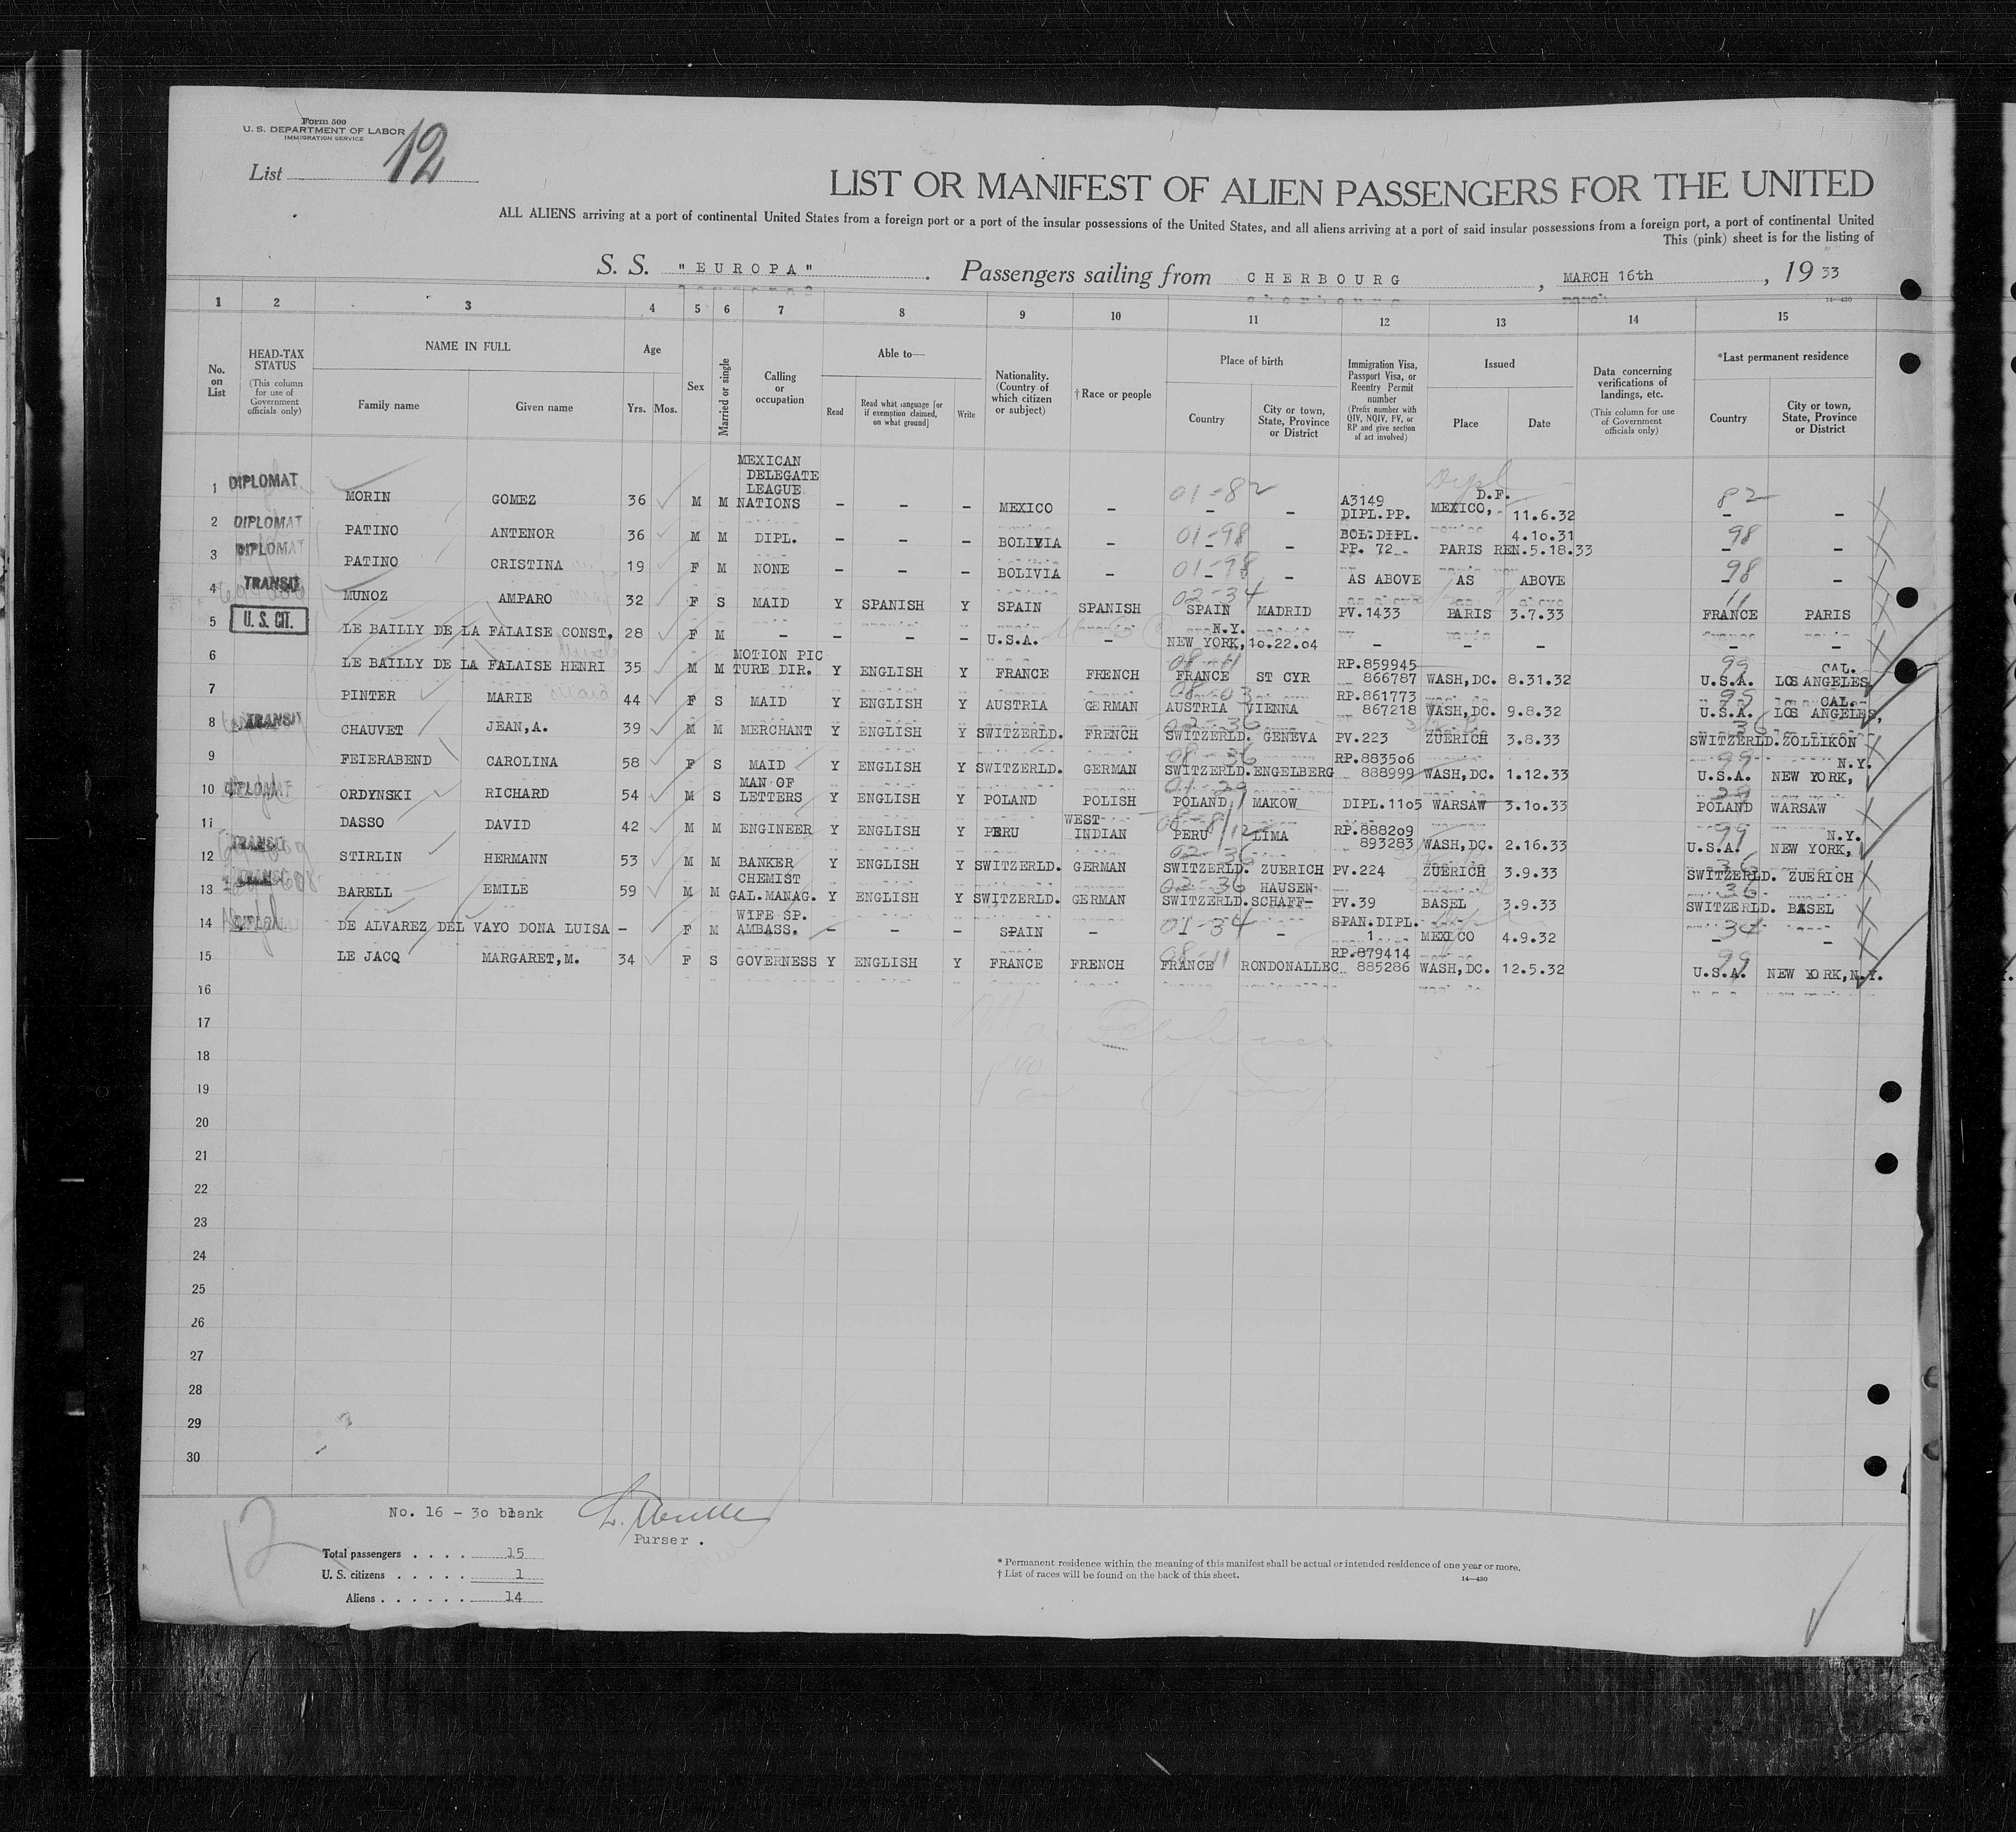 Form 500
U. S. DEPARTMENT OF LABOR
IMMIGRATION SERVICE
List 12
LIST OR MANIFEST OF ALIEN PASSENGERS FOR THE UNITED
ALL ALIENS arriving at a port of continental United States from a foreign port or a port of the insular possessions of the United States, and all aliens arriving at a port of said insular possessions from a foreign port, a port of continental United
This (pink) sheet is for the listing of
S. S. "EUROPA" . Passengers sailing from CHERBOURG , MARCH 16th , 19 33
14—430
1 2 3 4 5 6 7 8 9 10 11 12 13 14 15
No. on List
HEAD-TAX STATUS (This column for use of Government officials only)
NAME IN FULL Family name Given name
Age Yrs. Mos.
Sex
Married or single
Calling or occupation
Able to— Read Read what language [or if exemption claimed, on what ground] Write
Nationality. (Country of which citizen or subject)
† Race or people
Place of birth Country City or town, State, Province or District
Immigration Visa, Passport Visa, or Reentry Permit number (Prefix number with QIV, NQIV, PV, or RP and give section of act involved)
Issued Place Date
Data concerning verifications of landings, etc. (This column for use of Government officials only)
*Last permanent residence Country City or town, State, Province or District
1 DIPLOMAT MORIN GOMEZ 36 M M MEXICAN DELEGATE LEAGUE NATIONS – – – MEXICO – 01-82 – – A3149 DIPL.PP. Dipl MEXICO, D.F. 11.6.32 82 – –
2 DIPLOMAT PATINO ANTENOR 36 M M DIPL. – – – BOLIVIA – 01-98 – – BOL.DIPL. PP. 72 PARIS 4.10.31 REN.5.18.33 98 – –
3 DIPLOMAT PATINO CRISTINA 19 F M NONE – – – BOLIVIA – 01-98 – – AS ABOVE AS ABOVE 98 – –
4 TRANSIT MUNOZ AMPARO 32 F S MAID Y SPANISH Y SPAIN SPANISH 02-34 SPAIN MADRID PV.1433 PARIS 3.7.33 11 FRANCE PARIS
5 U. S. CIT. LE BAILLY DE LA FALAISE CONST, 28 F M – – – – U.S.A. – N.Y. NEW YORK, 10.22.04 – – – – –
6 LE BAILLY DE LA FALAISE HENRI 35 M M MOTION PIC TURE DIR. Y ENGLISH Y FRANCE FRENCH 08-11 FRANCE ST CYR RP.859945 866787 WASH,DC. 8.31.32 99 U.S.A. CAL. LOS ANGELES
7 PINTER MARIE 44 F S MAID Y ENGLISH Y AUSTRIA GERMAN 08-03 AUSTRIA VIENNA RP.861773 867218 WASH,DC. 9.8.32 99 U.S.A. CAL. LOS ANGELES,
8 TRANSIT CHAUVET JEAN,A. 39 M M MERCHANT Y ENGLISH Y SWITZERLD. FRENCH 02-36 SWITZERLD. GENEVA PV.223 ZUERICH 3.8.33 36 SWITZERLD. ZOLLIKON
9 FEIERABEND CAROLINA 58 F S MAID Y ENGLISH Y SWITZERLD. GERMAN 08-36 SWITZERLD. ENGELBERG RP.883506 888999 WASH,DC. 1.12.33 99 U.S.A. N.Y. NEW YORK,
10 DIPLOMAT ORDYNSKI RICHARD 54 M S MAN OF LETTERS Y ENGLISH Y POLAND POLISH 01-29 POLAND MAKOW DIPL.1105 WARSAW 3.10.33 29 POLAND WARSAW
11 DASSO DAVID 42 M M ENGINEER Y ENGLISH Y PERU WEST INDIAN PERU LIMA RP.888209 893283 WASH,DC. 2.16.33 99 U.S.A. N.Y. NEW YORK,
12 TRANSIT STIRLIN HERMANN 53 M M BANKER Y ENGLISH Y SWITZERLD. GERMAN 02-36 SWITZERLD. ZUERICH PV.224 ZUERICH 3.9.33 36 SWITZERLD. ZUERICH
13 TRANSIT BARELL EMILE 59 M M CHEMIST GAL.MANAG. Y ENGLISH Y SWITZERLD. GERMAN 02-36 SWITZERLD. HAUSEN SCHAFF- PV.39 BASEL 3.9.33 36 SWITZERLD. BASEL
14 DIPLOM. DE ALVAREZ DEL VAYO DONA LUISA – F M WIFE SP. AMBASS. – – – SPAIN – 01-34 – SPAN.DIPL. 1 MEXICO 4.9.32 34 – –
15 LE JACQ MARGARET,M. 34 F S GOVERNESS Y ENGLISH Y FRANCE FRENCH 08-11 FRANCE RONDONALLEC RP.879414 885286 WASH,DC. 12.5.32 99 U.S.A. NEW YORK,N.Y.
16
17
18
19
20
21
22
23
24
25
26
27
28
29
30
No. 16 - 30 blank
Purser .
12
Total passengers . . . . 15
U. S. citizens . . . . . 1
Aliens . . . . . . 14
* Permanent residence within the meaning of this manifest shall be actual or intended residence of one year or more.
† List of races will be found on the back of this sheet.
14—430